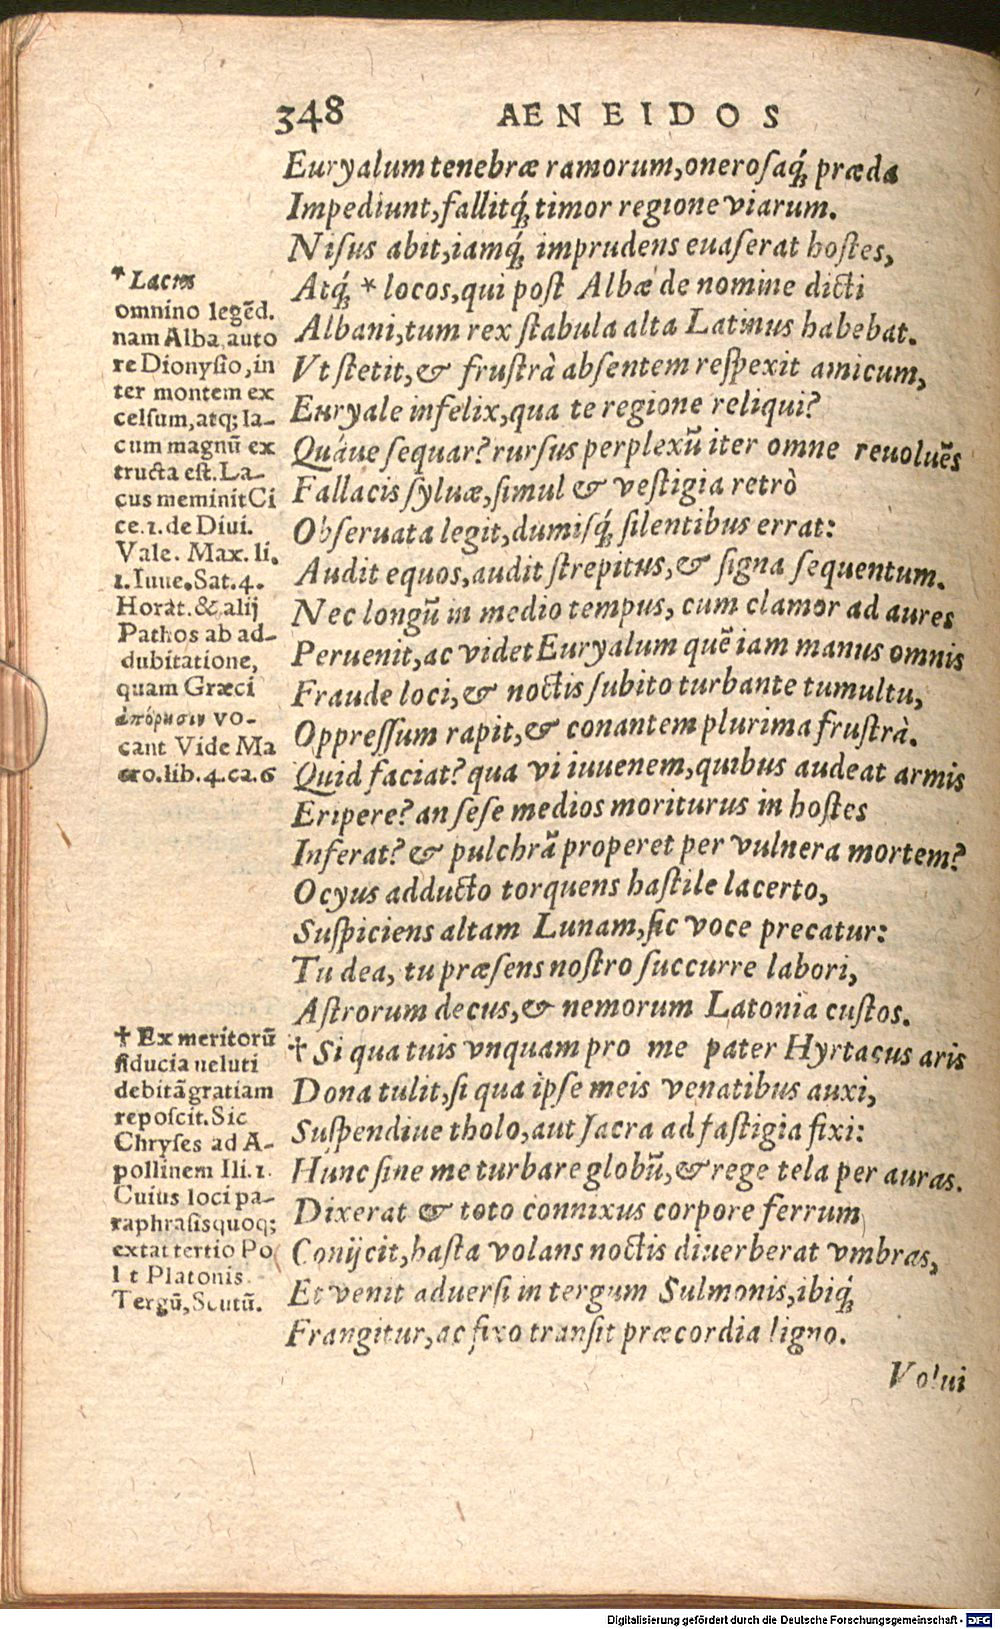 348 AENEIDOS
Euryalum tenebræ ramorum, onerosaq́; præda
Impediunt, fallitq́; timor regione viarum.
Nisus abit, iamq́; imprudens euaserat hostes,
Atq́; * locos, qui post Albæ de nomine dicti
Albani, tum rex stabula alta Latinus habebat.
Vt stetit, & frustrà absentem respexit amicum,
Euryale infelix, qua te regione reliqui?
Quáue sequar? rursus perplexũ iter omne reuoluẽs
Fallacis syluæ, simul & vestigia retrò
Obseruata legit, dumisq́; silentibus errat:
Audit equos, audit strepitus, & signa sequentum.
Nec longũ in medio tempus, cum clamor ad aures
Peruenit, ac videt Euryalum quẽ iam manus omnis
Fraude loci, & noctis subito turbante tumultu,
Oppressum rapit, & conantem plurima frustrà.
Quid faciat? qua vi iuuenem, quibus audeat armis
Eripere? an sese medios moriturus in hostes
Inferat? & pulchrã properet per vulnera mortem?
Ocyus adducto torquens hastile lacerto,
Suspiciens altam Lunam, sic voce precatur:
Tu dea, tu præsens nostro succurre labori,
Astrorum decus, & nemorum Latonia custos.
† Si qua tuis vnquam pro me pater Hyrtacus aris
Dona tulit, si qua ipse meis venatibus auxi,
Suspendiue tholo, aut sacra ad fastigia fixi:
Hunc sine me turbare globũ, & rege tela per auras.
Dixerat & toto connixus corpore ferrum
Conijcit, hasta volans noctis diuerberat vmbras,
Et venit aduersi in tergum Sulmonis, ibiq́;
Frangitur, ac fixo transit præcordia ligno.
Volui
* Lacus
omnino legẽd.
nam Alba, auto
re Dionysio, in
ter montem ex
celsum, atq; la-
cum magnũ ex
tructa est. La-
cus meminit Ci
ce. 1. de Diui.
Vale. Max. li.
1. Iuue. Sat. 4.
Horat. & alij
Pathos ab ad-
dubitatione,
quam Græci
ἀπόρησιν vo-
cant Vide Ma
cro. lib. 4. ca. 6
† Ex meritorũ
fiducia ueluti
debitã gratiam
reposcit. Sic
Chryses ad A-
pollinem Ili. 1.
Cuius loci pa-
raphrasis quoq;
extat tertio Po
lit Platonis.
Tergũ, Scutũ.
Digitalisierung gefördert durch die Deutsche Forschungsgemeinschaft - DFG